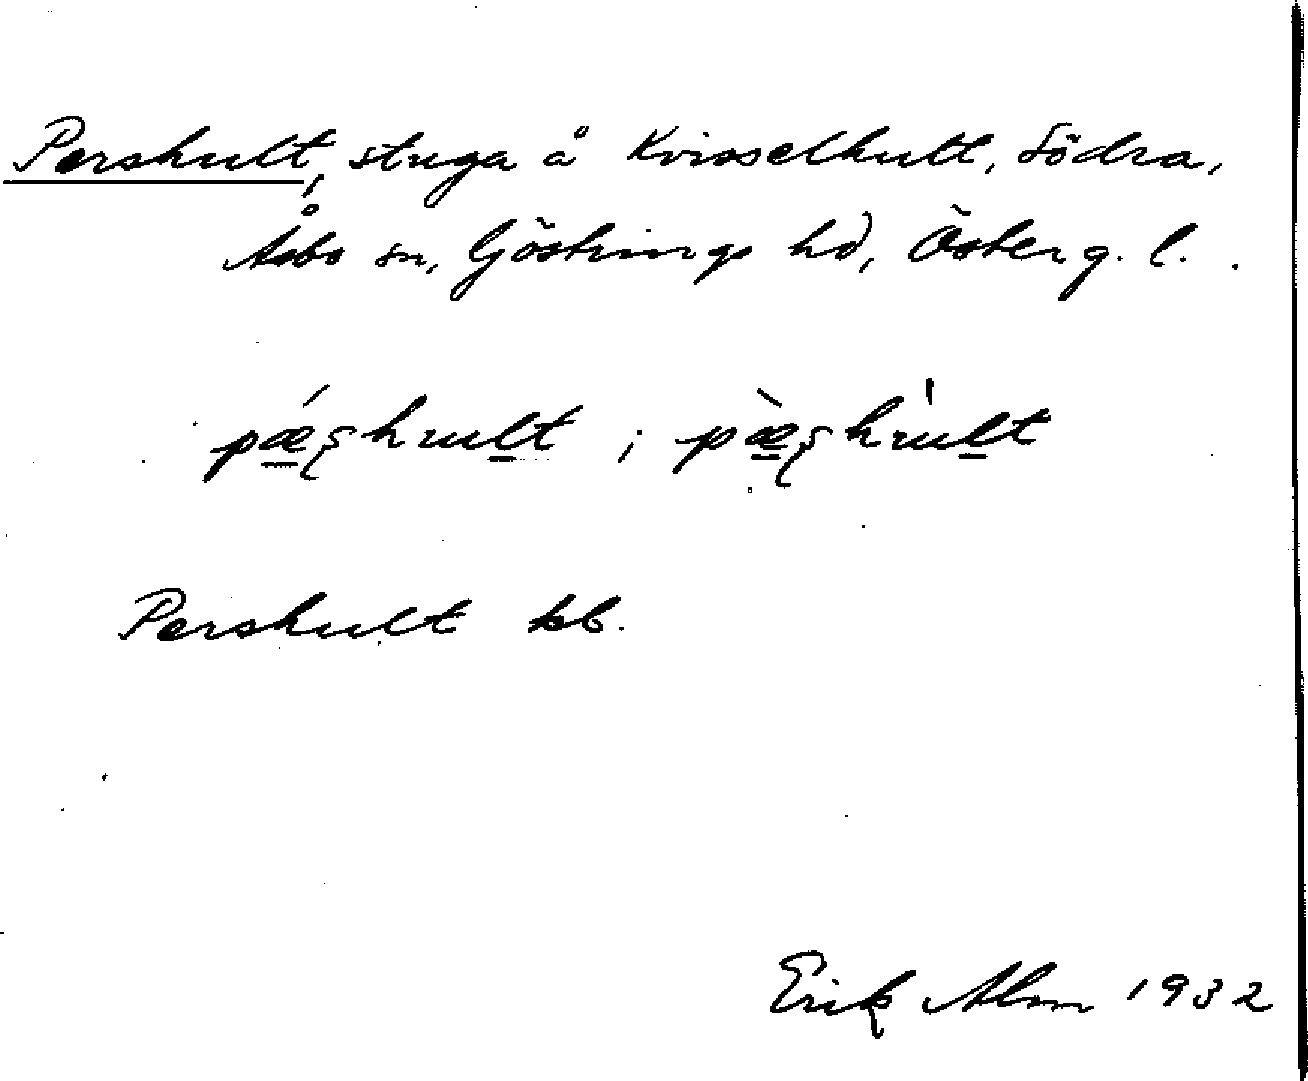 Pershult, stuga å Kvisselhult, Södra,
Åsbo sn, Göstrings hd, Österg. l.
pǽʂhult ; pæ̀ʂhùlt
Pershult kb.
Erik Alm 1932